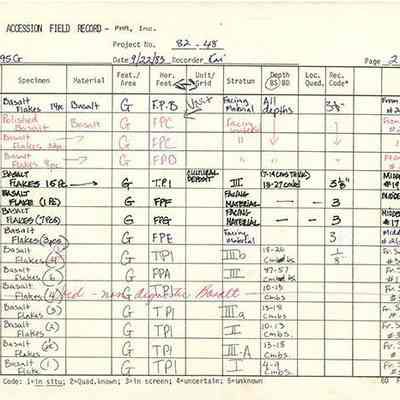 ACCESSION FIELD RECORD - PHRI, Inc.
Project No. 82-48
95G Date 9/22/83 Recorder Kai Page 2
Specimen Material Feat./Area Hor. Feat. Unit/Grid Stratum Depth BS/BD Loc. Quad. Rec. Code*
Basalt Flakes 14pc Basalt G F.P.B Unit Facing Material All depths 3 1/8" From
Polished Basalt Basalt G FPC Facing From
Basalt Flakes G FPC " " From
Basalt Flakes 8pc G FPD " From
BASALT FLAKES 15 Pc G TP1 CULTURAL DEPOSIT III 13-27 cmbs 3 1/8" MIDDE
BASALT FLAKES (1 PC) G FPF FACING MATERIAL — — 3 MIDDE
BASALT FLAKES (7 PCS) G FPG FACING MATERIAL — — 3 MIDDE
Basalt Flakes (3pcs) G FPE Facing Material 3
Basalt Flakes G TP1 III b 18-26 cmbs 1/8
Basalt Flakes (6) G FPA III 47-57 cmbs
Basalt Flakes (4) - non diagnostic Basalt - 10-18 cmbs
Basalt Flakes (3) G TP1 III a 13-18 cmbs
Basalt Flakes (2) G TP1 II 10-13 cmbs
Basalt Flakes G TP1 III-A 13-18 cmbs.
Basalt Flakes (1) G TP1 I 4-9 cmbs.
Code: 1=in situ; 2=Quad.known; 3=in screen; 4=uncertain; 5=unknown